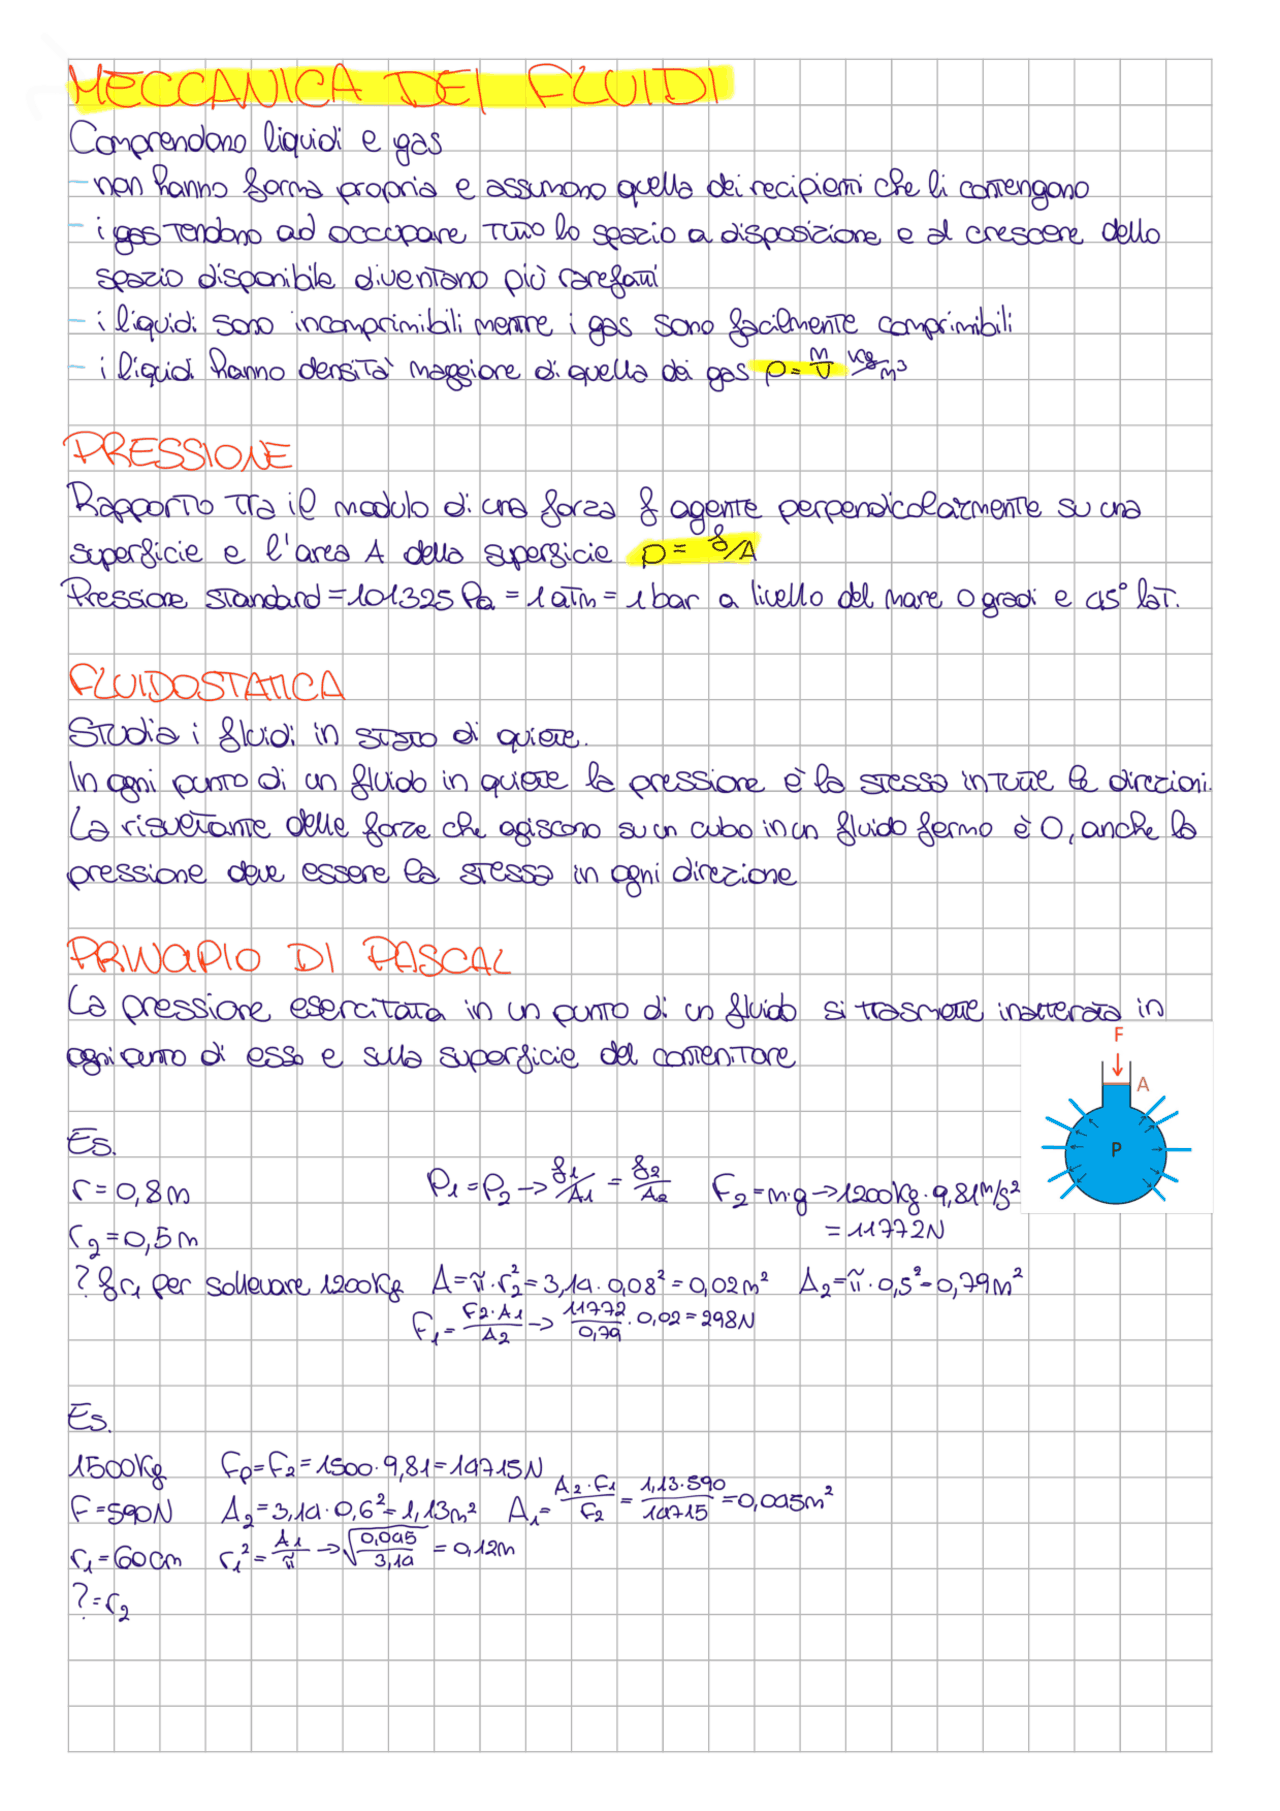 MECCANICA DEI FLUIDI
Comprendono liquidi e gas
- non hanno forma propria e assumono quella dei recipienti che li contengono
- i gas tendono ad occupare tutto lo spazio a disposizione e al crescere dello
spazio disponibile diventano più rarefatti
- i liquidi sono incomprimibili mentre i gas sono facilmente comprimibili
- i liquidi hanno densità maggiore di quella dei gas ρ = m/v kg/m³
PRESSIONE
Rapporto tra il modulo di una forza f agente perpendicolarmente su una
superficie e l'area A della superficie p = f/A
Pressione standard = 101325 Pa = 1 atm = 1 bar a livello del mare 0 gradi e 45° lat.
FLUIDOSTATICA
Studia i fluidi in stato di quiete.
In ogni punto di un fluido in quiete la pressione è la stessa in tutte le direzioni.
La risultante delle forze che agiscono su un cubo in un fluido fermo è 0, anche la
pressione deve essere la stessa in ogni direzione
PRINCIPIO DI PASCAL
La pressione esercitata in un punto di un fluido si trasmette inalterata in
ogni punto di esso e sulla superficie del contenitore
F
A
P
Es.
r = 0,8m
P₁ = P₂ → f₁/A₁ = f₂/A₂ F₂ = m·g → 1200kg · 9,81 m/s²
= 11772N
r₂ = 0,5m
? f r₁ per sollevare 1200kg A = π · r₂² = 3,14 · 0,08² = 0,02m² A₂ = π · 0,5² = 0,79m²
F₁ = F₂·A₁/A₂ → 11772/0,79 · 0,02 = 298N
Es.
1500kg Fp = F₂ = 1500 · 9,81 = 14715N
F = 590N A₂ = 3,14 · 0,6² = 1,13m² A₁ = A₂·F₁/F₂ = 1,13·590/14715 = 0,045m²
r₁ = 60cm r₁² = A₁/π → √0,045/3,14 = 0,12m
? = r₂